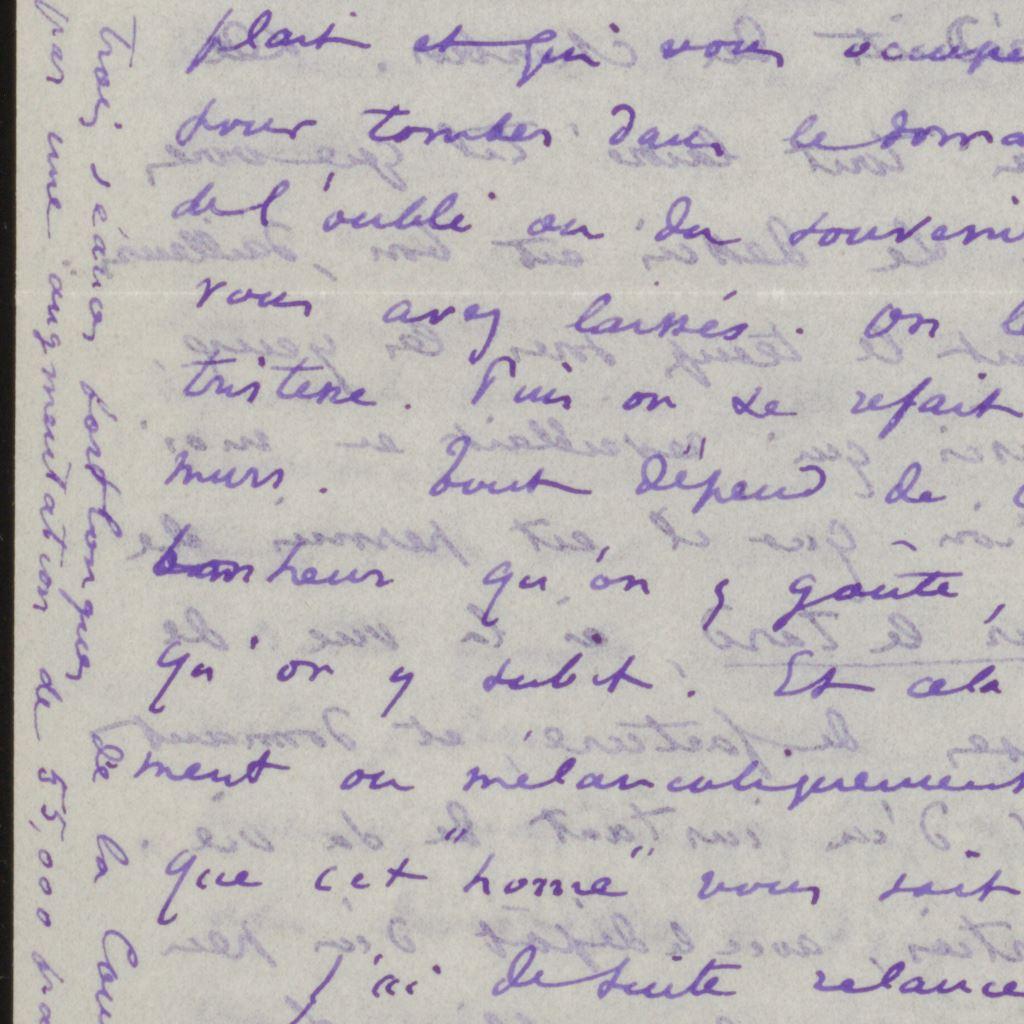 plait et qui vous occupe
pour tomber dans le doma
de l'oubli ou du souveni
vous avez laissés. On l
tristesse. Puis on se refait
murs. Tout dépend de
bonheur qu'on y goûte,
qu'on y subit. Et cela
ment ou mélancoliquement
que cet "home" vous soit
J'ai de suite relancé
trois séances sont longues de la Cou
par une augmentation de 55,000 fra